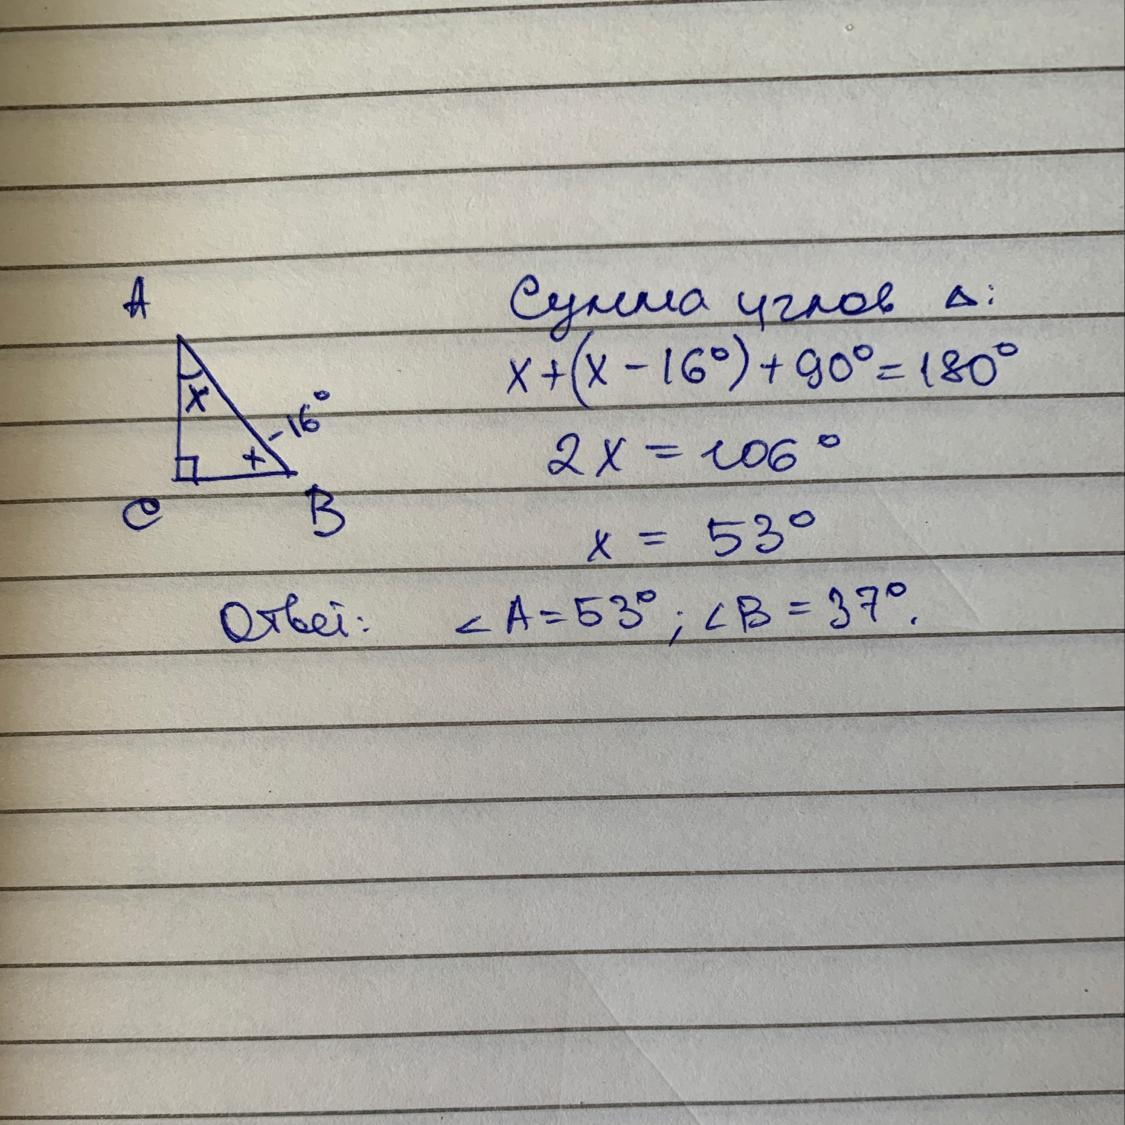 A
x
-16°
x
C
B
Сумма углов Δ:
x+(x-16°)+90°=180°
2x=106°
x = 53°
Ответ: ∠A=53°; ∠B=37°.